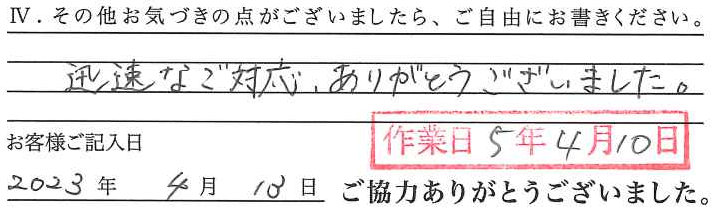 Ⅳ．その他お気づきの点がございましたら、ご自由にお書きください。
迅速なご対応、ありがとうございました。
お客様ご記入日
作業日 5年4月10日
2023年 4月 13日 ご協力ありがとうございました。